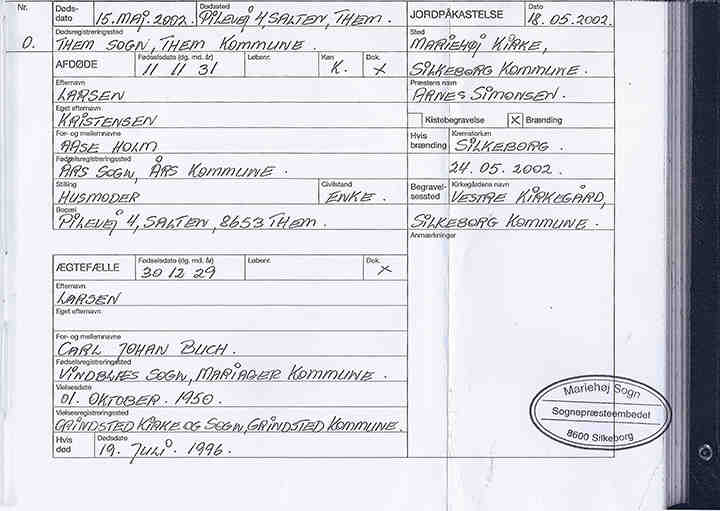 Nr. Døds-dato 15. MAJ. 2002. Dødssted PILEVEJ 4, SALTEN, THEM. JORDPÅKASTELSE Dato 18.05.2002.
0. Dødsregistreringssted THEM SOGN, THEM KOMMUNE. Sted MARIEHØJ KIRKE,
AFDØDE Fødselsdato (dg. md. år) 11 11 31 Løbenr. Køn K. Dok. X SILKEBORG KOMMUNE.
Efternavn LARSEN Præstens navn ARNES SIMONSEN.
Eget efternavn KRISTENSEN Kistebegravelse X Brænding
For- og mellemnavne AASE HOLM Hvis brænding Krematorium SILKEBORG.
Fødselsregistreringssted ÅRS SOGN, ÅRS KOMMUNE. 24.05.2002.
Stilling HUSMODER Civilstand ENKE. Begravel-sessted Kirkegårdens navn VESTRE KIRKEGÅRD,
Bopæl PILEVEJ 4, SALTEN, 8653 THEM. SILKEBORG KOMMUNE.
Anmærkninger
ÆGTEFÆLLE Fødselsdato (dg. md. år) 30 12 29 Løbenr. Dok. X
Efternavn LARSEN
Eget efternavn
For- og mellemnavne
CARL JOHAN BUCH.
Fødselsregistreringssted
VINDBLÆS SOGN, MARIAGER KOMMUNE.
Vielsesdato
01. OKTOBER. 1950.
Vielsesregistreringssted
GRINDSTED KIRKE OG SOGN, GRINDSTED KOMMUNE.
Hvis død Dødsdato 19. JULI. 1996.
Mariehøj Sogn
Sognepræsteembedet
8600 Silkeborg